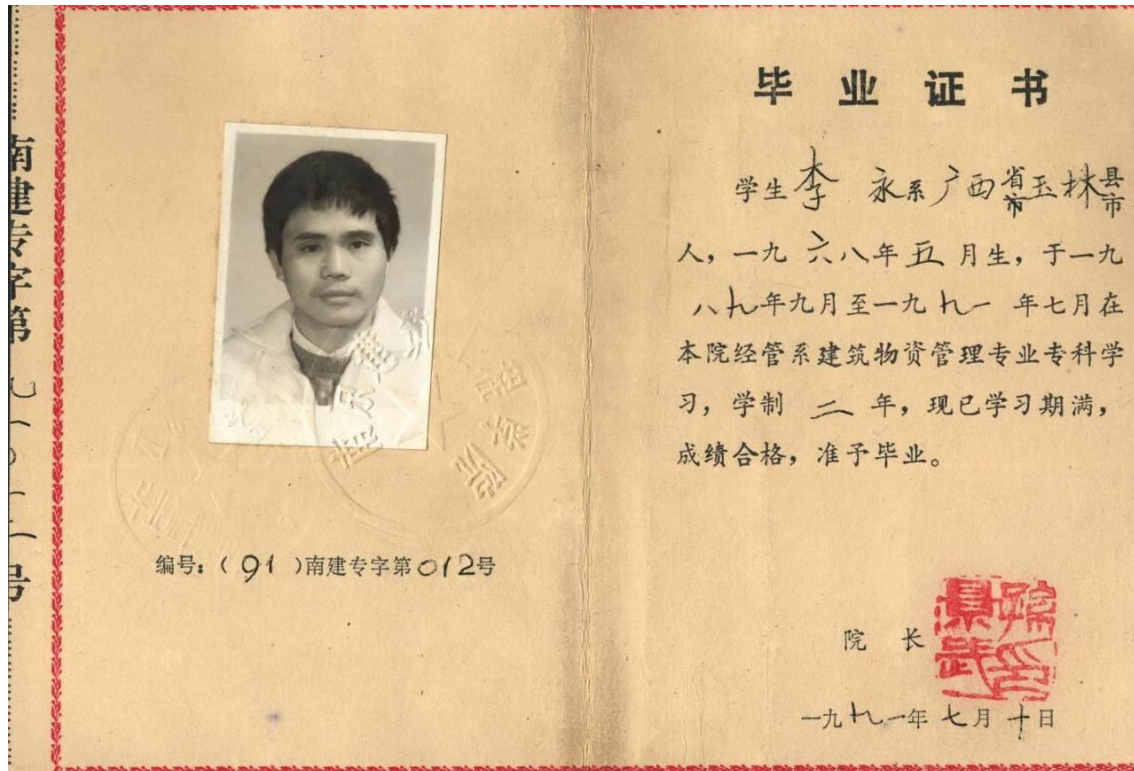 南建专字第
号
编号：（91）南建专字第012号
毕业证书
学生李永系广西省市玉林县市
人，一九六八年五月生，于一九
八九年九月至一九九一年七月在
本院经管系建筑物资管理专业专科学
习，学制二年，现已学习期满，
成绩合格，准予毕业。
院长
一九九一年七月十日